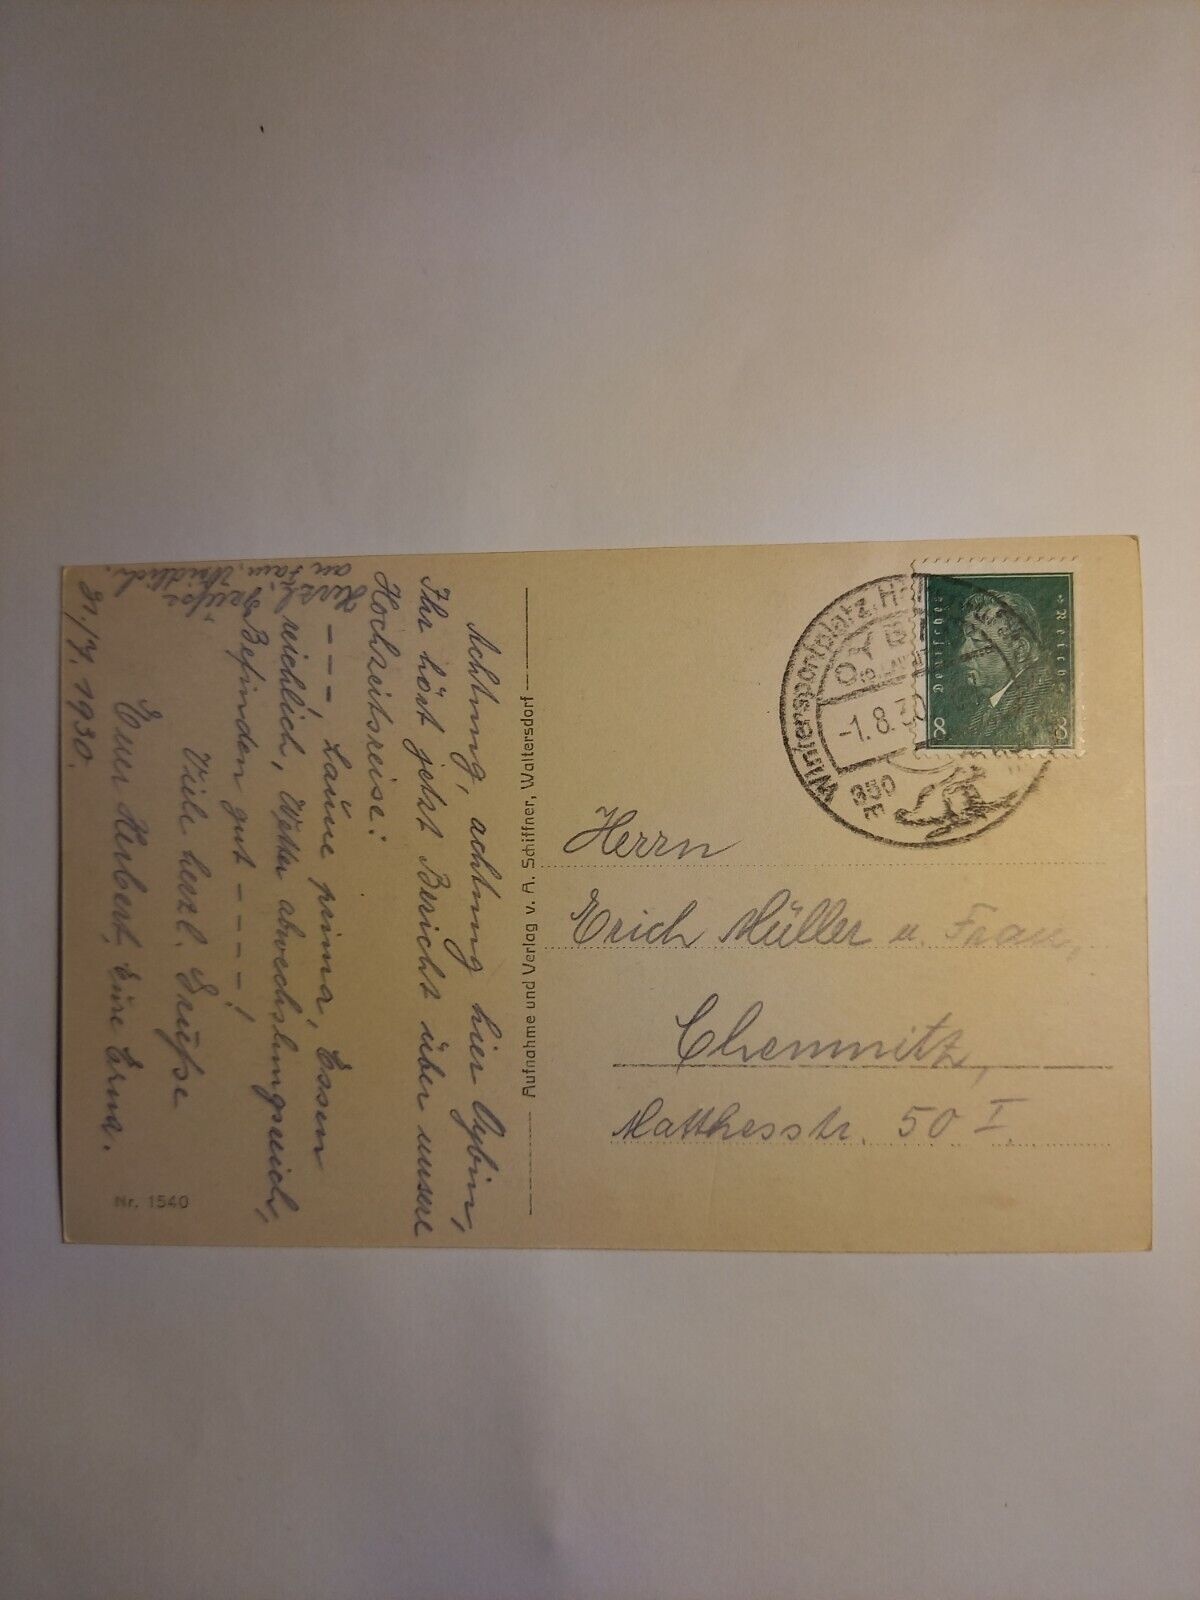 31./7. 1930.
Achtung, achtung hier Oybin,
Ihr hört jetzt Bericht über unsere
Hochzeitsreise:
--- Laune prima, Essen
reichlich, Wetter abwechslungsreich,
Befinden gut ----!
Viele herzl. Grüße
Euer Herbert, Eure Erna.
Herzl. Grüße
an Fam. Weidlich.
Nr. 1540
Aufnahme und Verlag v. A. Schiffner, Waltersdorf
Wintersportplatz
OYBIN
-1.8.30
850
Deutsches Reich
8 8
Herrn
Erich Müller u. Frau,
Chemnitz,
Matthesstr. 50 I.